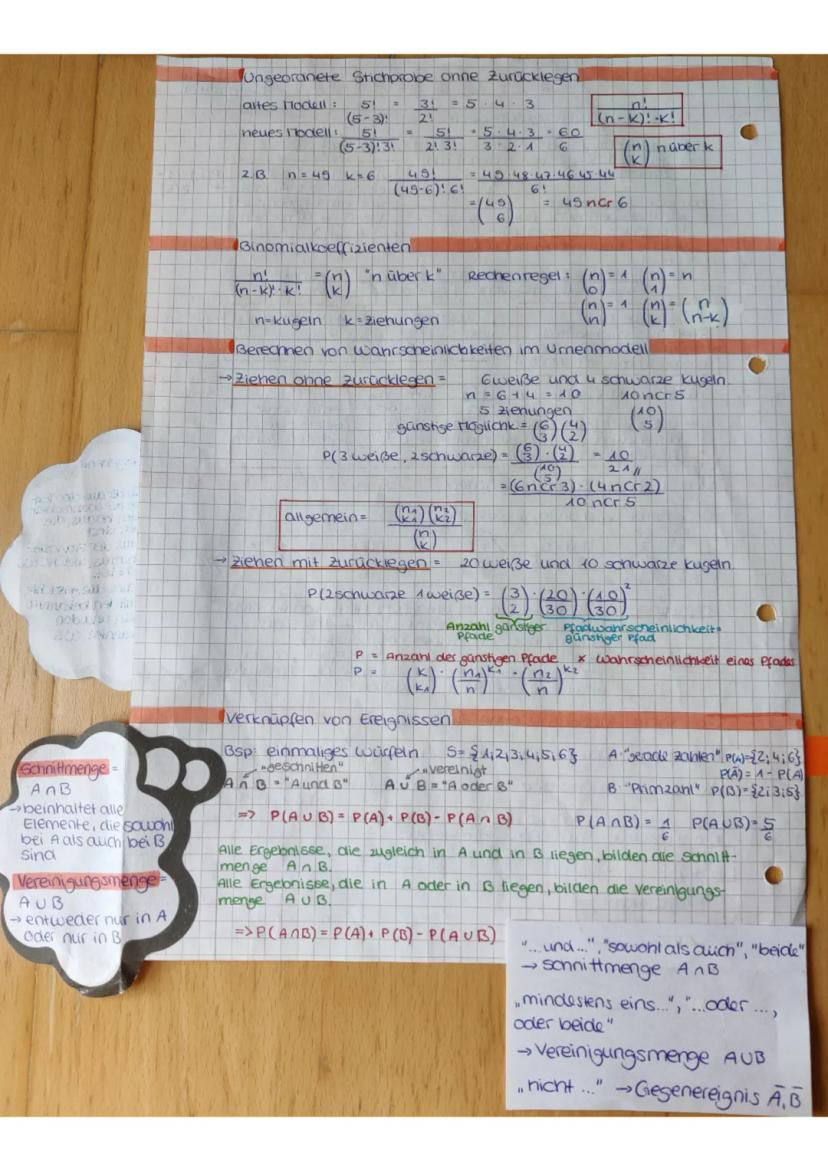 Ungeordnete Stichprobe ohne Zurücklegen
altes Modell: 5!/(5-3)! = 3!/2! = 5 · 4 · 3
n!/((n-k)!·k!)
neues Modell: 5!/((5-3)!3!) = 5!/(2! 3!) = (5·4·3)/(3·2·1) = 60/6
(n k) n über k
z.B n=49 k=6 49!/((49-6)!6!) = 49·48·47·46·45·44/6!
= (49 6) = 49 nCr 6
Binomialkoeffizienten
n!/((n-k)!·k!) = (n k) "n über k" Rechenregel: (n 0) = 1 (n 1) = n
(n n) = 1 (n k) = (n n-k)
n=kugeln k=ziehungen
Berechnen von Wahrscheinlichkeiten im Urnenmodell
→ Ziehen ohne Zurücklegen = 6 weiße und 4 schwarze Kugeln.
n = 6 + 4 = 10 10 nCr 5
5 Ziehungen (10 5)
günstige Möglichk. = (6 3) (4 2)
P(3 weiße, 2 schwarze) = (6 3)·(4 2)/(10 5) = 10/21
= (6nCr3)·(4nCr2)/10nCr5
allgemein = (n1 k1)(n2 k2)/(n k)
→ Ziehen mit Zurücklegen = 20 weiße und 10 schwarze Kugeln.
P(2 schwarze 1 weiße) = (3 2)·(20/30)·(10/30)²
Anzahl günstiger Pfade
Pfadwahrscheinlichkeit günstiger Pfad
P = Anzahl der günstigen Pfade × Wahrscheinlichkeit eines Pfades
P = (k k1)·(n1/n)^k1·(n2/n)^k2
Verknüpfen von Ereignissen
Bsp: einmaliges Würfeln S={1;2;3;4;5;6} A: "gerade Zahlen" P(A)={2;4;6}
„geschnitten" „vereinigt
P(Ā) = 1 - P(A)
A ∩ B = "A und B" A ∪ B = "A oder B"
B: "Primzahl" P(B)={2;3;5}
=> P(A ∪ B) = P(A) + P(B) - P(A ∩ B) P(A ∩ B) = 1/6 P(A∪B) = 5/6
Alle Ergebnisse, die zugleich in A und in B liegen, bilden die Schnitt-
menge A ∩ B.
Alle Ergebnisse, die in A oder in B liegen, bilden die Vereinigungs-
menge A ∪ B.
=> P(A∩B) = P(A) + P(B) - P(A∪B)
Schnittmenge =
A ∩ B
→ beinhaltet alle
Elemente, die sowohl
bei A als auch bei B
sind
Vereinigungsmenge =
A ∪ B
→ entweder nur in A
oder nur in B
"... und ...", "sowohl als auch", "beide"
→ Schnittmenge A ∩ B
„mindestens eins...", "...oder ...,
oder beide"
→ Vereinigungsmenge A∪B
„nicht ..." → Gegenereignis Ā, B̄